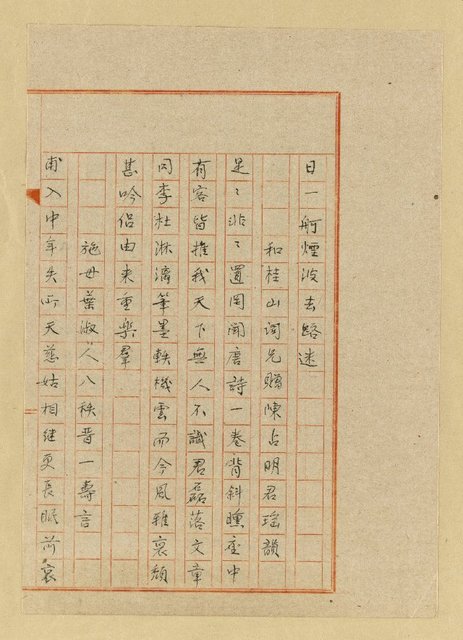 日一舸煙波去路迷
和桂山詞兄贈陳占明君瑤韻
是〻非〻置罔聞唐詩一卷背斜曛座中
有客皆推我天下無人不識君磊落文章
同李杜淋漓筆墨軼機雲而今風雅衰頹
甚吟侶由來重樂羣
施母葉淑人八秩晋一壽言
甫入中年失所天慈姑相継更長眠前哀